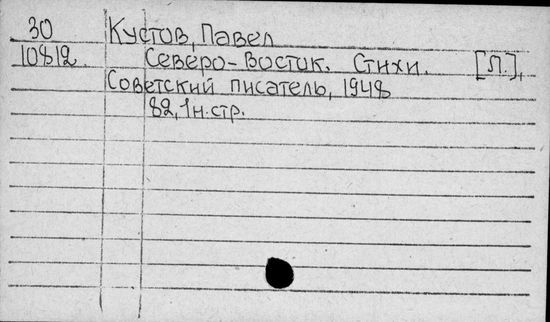 30 Кустов, Павел
10812. Северо-Восток. Стихи. [Л.],
Советский писатель, 1948
82, 1н.стр.